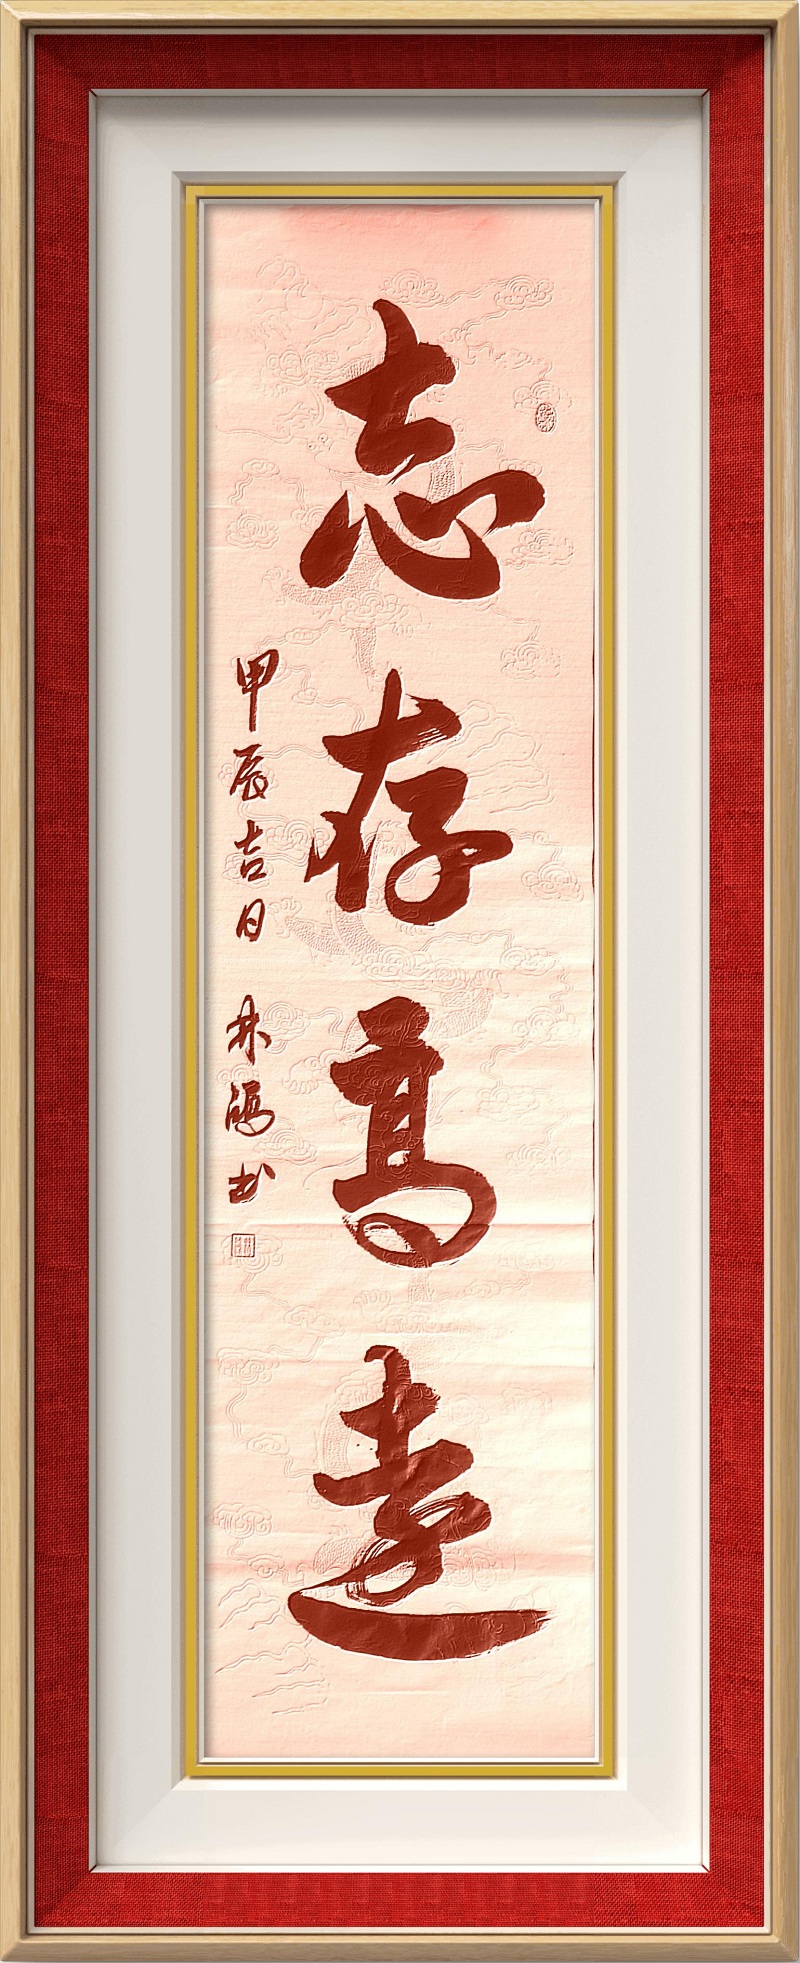 志存高远
甲辰吉日 林鸿书